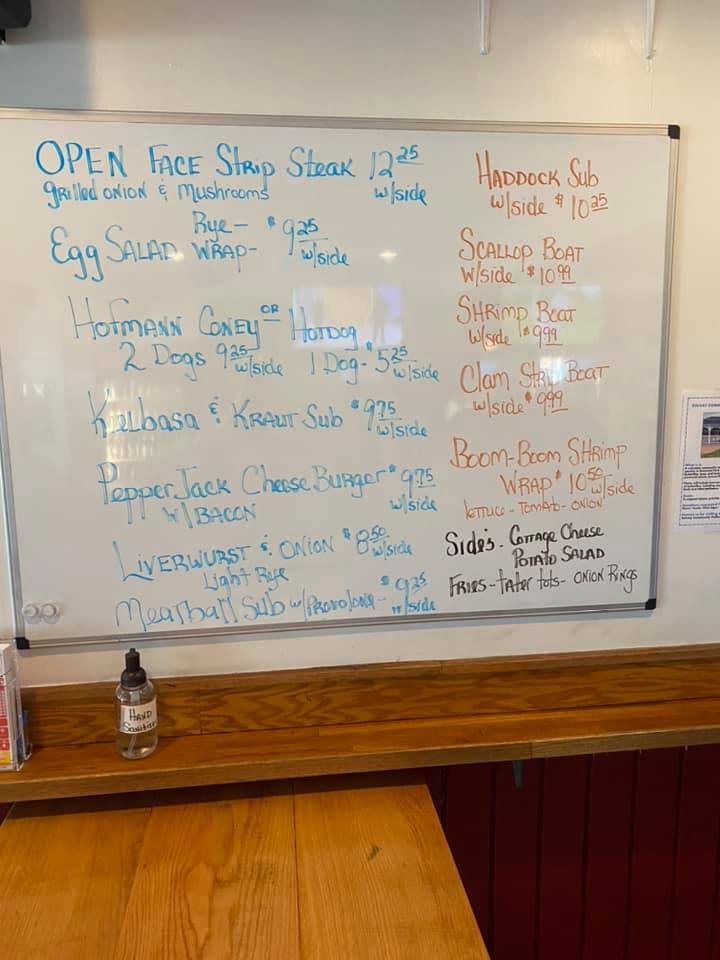 OPEN FACE Strip Steak 12 25
grilled ONION & Mushrooms w/side
Rye-
Egg SALAD WRAP- $9 25
w/side
HOFMANN CONEY OR HOTDOG
2 DOGS 9 25 w/side 1 DOG- $5 25 w/side
Kielbasa & KRAUT SUB $9 75
w/side
Pepper Jack Cheese Burger $9 75
W/BACON w/side
LIVERWURST & ONION $8 50
w/side
Light Rye
Meatball Sub w/Provolone- $9 25
w/side
HADDOCK Sub
w/side $10 25
SCALLOP BOAT
w/side $10 99
SHRIMP BOAT
w/side $9 99
Clam Strip BOAT
w/side $9 99
BOOM-BOOM SHRIMP
WRAP $10 50 w/side
lettuce - TOMATO - ONION
Side's - Cottage Cheese
POTATO SALAD
FRIES - tAter tots - ONION RINGS
HAND
Sanitizer